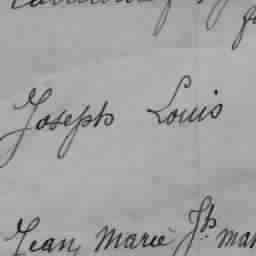 Joseph Louis
Jean, Marie Jh. mar